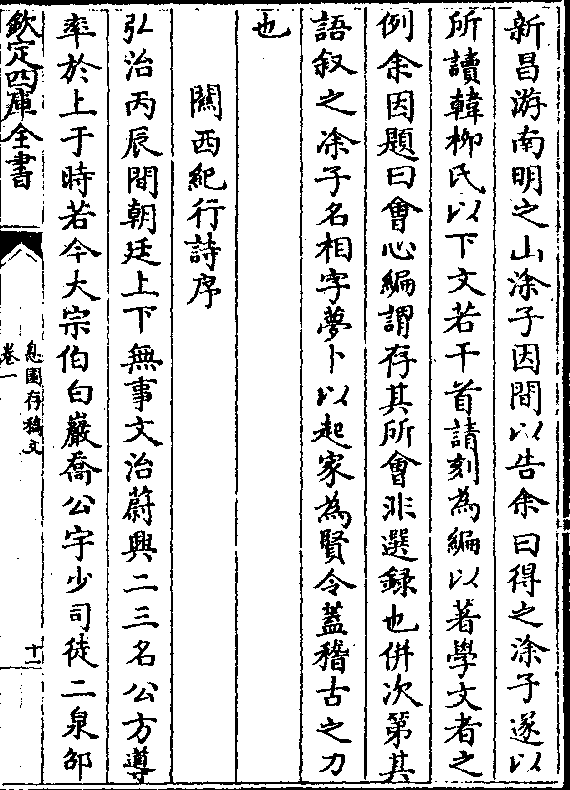 新昌游南明之山涂子因間以告余曰得之涂子遂以
所讀韓柳氏以下文若干首請刻為編以著學文者之
例余因題曰會心編謂存其所會非選録也併次第其
語叙之涂子名相字夢卜以起家為賢令蓋稽古之力
也
關西紀行詩序
弘治丙辰間朝廷上下無事文治蔚興二三名公方遵
率於上于時若今大宗伯白巖喬公宇少司徒二泉邵
欽定四庫全書
息園存稿文
卷一
十二